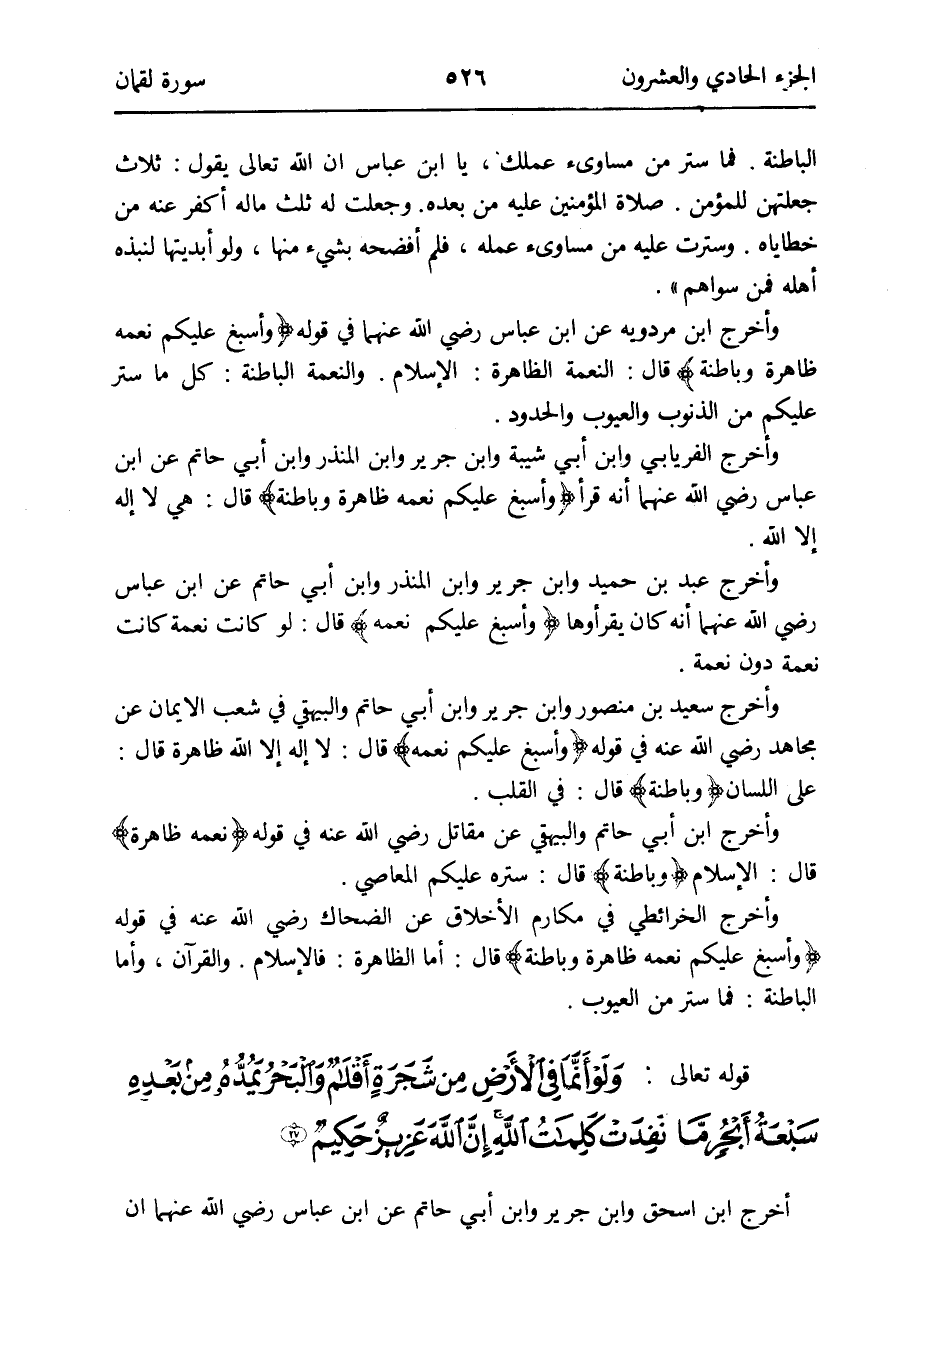 الجزء الحادي والعشرون ٥٢٦ سورة لقمان
الباطنة . فما ستر من مساوىء عملك ، يا ابن عباس ان الله تعالى يقول : ثلاث
جعلتهن للمؤمن . صلاة المؤمنين عليه من بعده. وجعلت له ثلث ماله أكفر عنه من
خطاياه . وسترت عليه من مساوىء عمله ، فلم أفضحه بشيء منها ، ولو أبديتها لنبذه
أهله فمن سواهم » .
وأخرج ابن مردويه عن ابن عباس رضي الله عنهما في قوله ﴿وأسبغ عليكم نعمه
ظاهرة وباطنة﴾ قال : النعمة الظاهرة : الإسلام . والنعمة الباطنة : كل ما ستر
عليكم من الذنوب والعيوب والحدود .
وأخرج الفريابي وابن أبي شيبة وابن جرير وابن المنذر وابن أبي حاتم عن ابن
عباس رضي الله عنهما أنه قرأ ﴿وأسبغ عليكم نعمه ظاهرة وباطنة﴾ قال : هي لا إله
إلا الله .
وأخرج عبد بن حميد وابن جرير وابن المنذر وابن أبي حاتم عن ابن عباس
رضي الله عنهما أنه كان يقرأوها ﴿وأسبغ عليكم نعمه﴾ قال : لو كانت نعمة كانت
نعمة دون نعمة .
وأخرج سعيد بن منصور وابن جرير وابن أبي حاتم والبيهقي في شعب الايمان عن
مجاهد رضي الله عنه في قوله ﴿وأسبغ عليكم نعمه﴾ قال : لا إله إلا الله ظاهرة قال :
على اللسان ﴿وباطنة﴾ قال : في القلب .
وأخرج ابن أبي حاتم والبيهقي عن مقاتل رضي الله عنه في قوله ﴿نعمه ظاهرة﴾
قال : الإسلام ﴿وباطنة﴾ قال : ستره عليكم المعاصي .
وأخرج الخرائطي في مكارم الأخلاق عن الضحاك رضي الله عنه في قوله
﴿وأسبغ عليكم نعمه ظاهرة وباطنة﴾ قال : أما الظاهرة : فالإسلام . والقرآن ، وأما
الباطنة : فما ستر من العيوب .
قوله تعالى : وَلَوْ أَنَّمَا فِي ٱلْأَرْضِ مِن شَجَرَةٍ أَقْلَٰمٌ وَٱلْبَحْرُ يَمُدُّهُۥ مِنۢ بَعْدِهِۦ
سَبْعَةُ أَبْحُرٍ مَّا نَفِدَتْ كَلِمَٰتُ ٱللَّهِ ۗ إِنَّ ٱللَّهَ عَزِيزٌ حَكِيمٌ ٢٧
أخرج ابن اسحق وابن جرير وابن أبي حاتم عن ابن عباس رضي الله عنهما ان